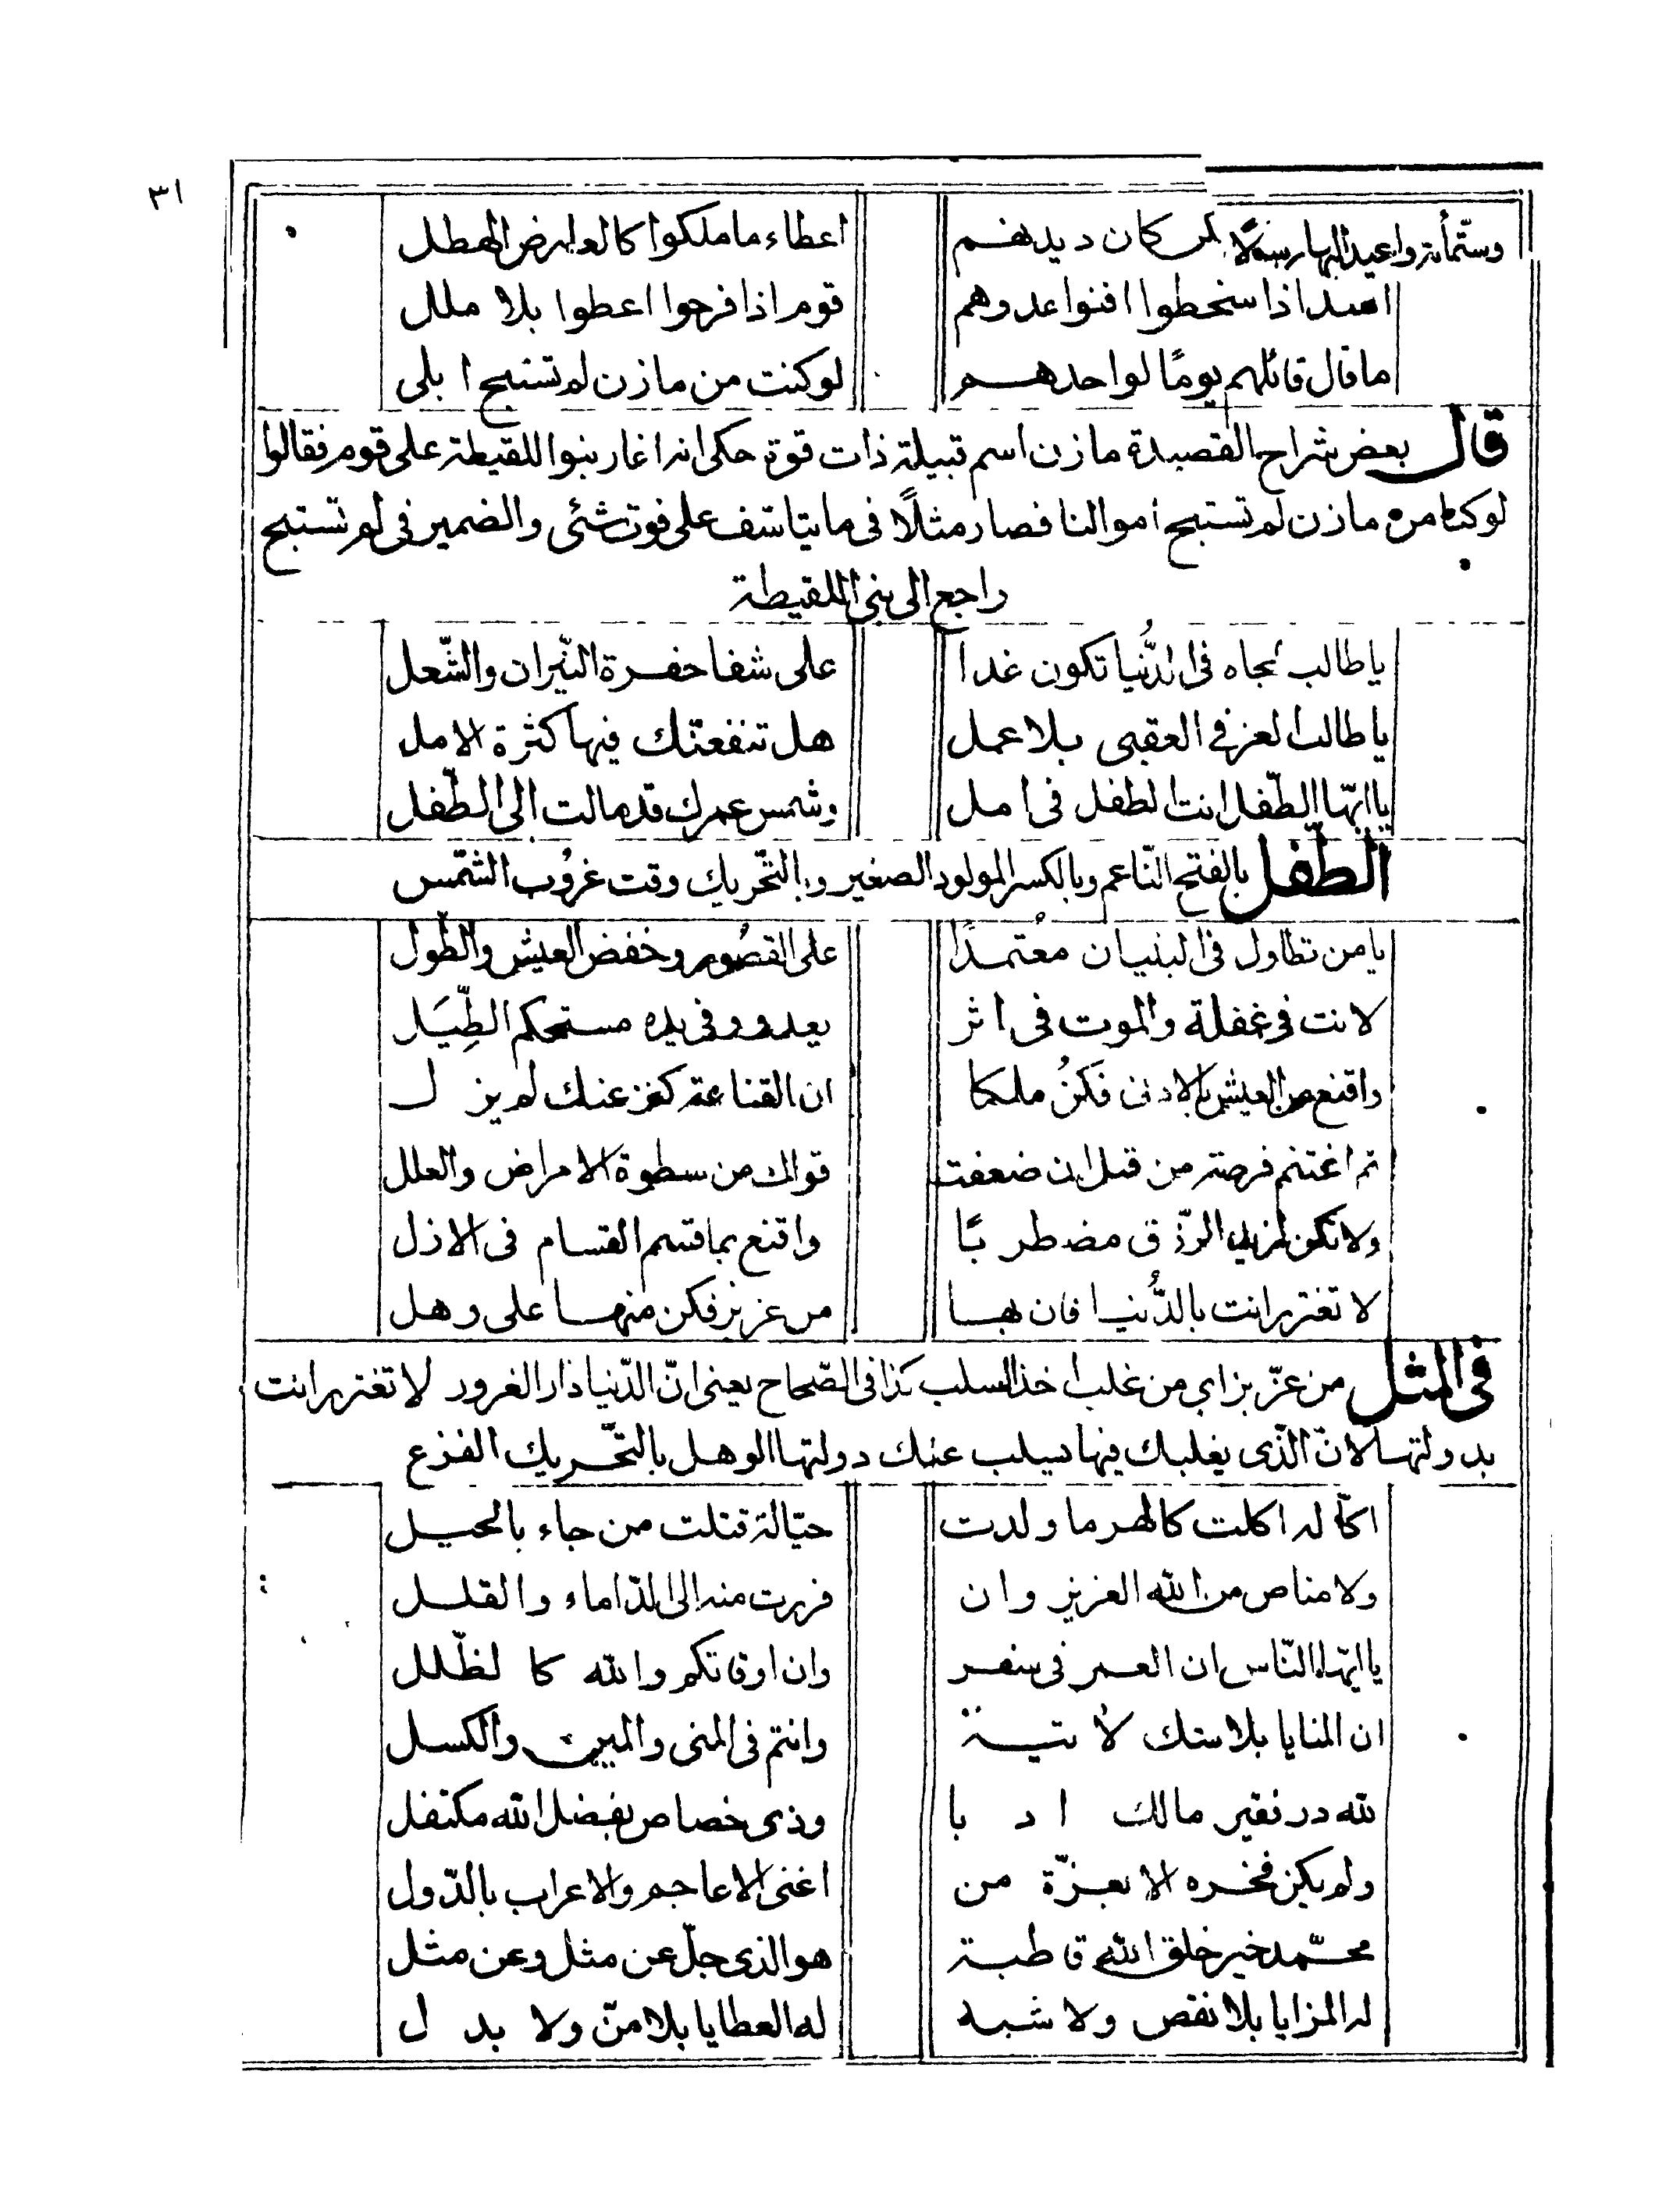 ٣١
كان ديدنهم اعطاء ما ملكوا كالعارض الهطل
اسد اذا سخطوا افنوا عدوهم قوم اذا فرحوا اعطوا بلا ملل
ما قال قائلهم يومًا لواحدهم لو كنت من مازن لم تستبح ابلى
قال بعض شراح القصيدة مازن اسم قبيلة ذات قوة حكى انه اغار بنوا اللقيطة على قوم فقالوا
لو كنا من مازن لم تستبح اموالنا فصار مثلًا فى ما يتاسف على فوت شئى والضمير فى لم تستبح
راجع الى بنى اللقيطة
يا طالب الجاه فى الدُّنيا تكون غدا على شفا حفرة النّيران والشّعل
يا طالب العز فى العقبى بلا عمل هل تنفعنّك فيها كثرة الامل
يا ايّها الطّفل انت الطفل فى امل وشمس عمرك قد مالت الى الطّفل
الطّفل بالفتح النّاعم وبالكسر المولود الصغير وبالتّحريك وقت غروُب الشّمس
يا من تطاول فى البنيان معُتمدًا على القصُور وخفض العيش والطّول
لانت فى غفلة والموت فى اثر يعدو وفى يده مستحكم الطِّيَل
واقنع من العيش بالادنى فكنُ ملكا ان القناعة كنز عنك لم يزل
ثم اغتنم فرصة من قبل ان ضعفت قواك من سطوة الامراض والعلل
ولا تكون لمزيد الرّزق مضطربًا واقنع بما قسم القسام فى الازل
لا تغترر انت بالدُّنيا فان بها من عز بز فكن منها على وهل
فى المثل من عزّ بز اى من غلب اخذ السلب كذا فى الصّحاح يعنى انّ الدّنيا دار الغرور لا تغترر انت
بدولتها لانّ الّذى يغلبك فيها سيلب عنك دولتها الوهل بالتّحريك الفزع
اكّالة اكلت كالهر ما ولدت حيّالة قتلت من جاء بالحيل
ولا مناص من الله العزيز وان فررت منه الى الدّاماء والقلل
يا ايّها النّاس ان العمر فى سفر وان اوقاتكم والله كالظّلل
ان المنايا بلا شك لاتية وانتم فى المنى والمين والكسل
لله در فقير مالك ادبا وذى خصاص بفضل الله مكتفل
ولم يكن فخره الا بعزّة من اغنى الاعاجم والاعراب بالدّول
محمّد خير خلق الله قاطبة هو الذى جلّ عن مثل وعن مثل
له المزايا بلا نقص ولا شبه له العطايا بلا منّ ولا بدل